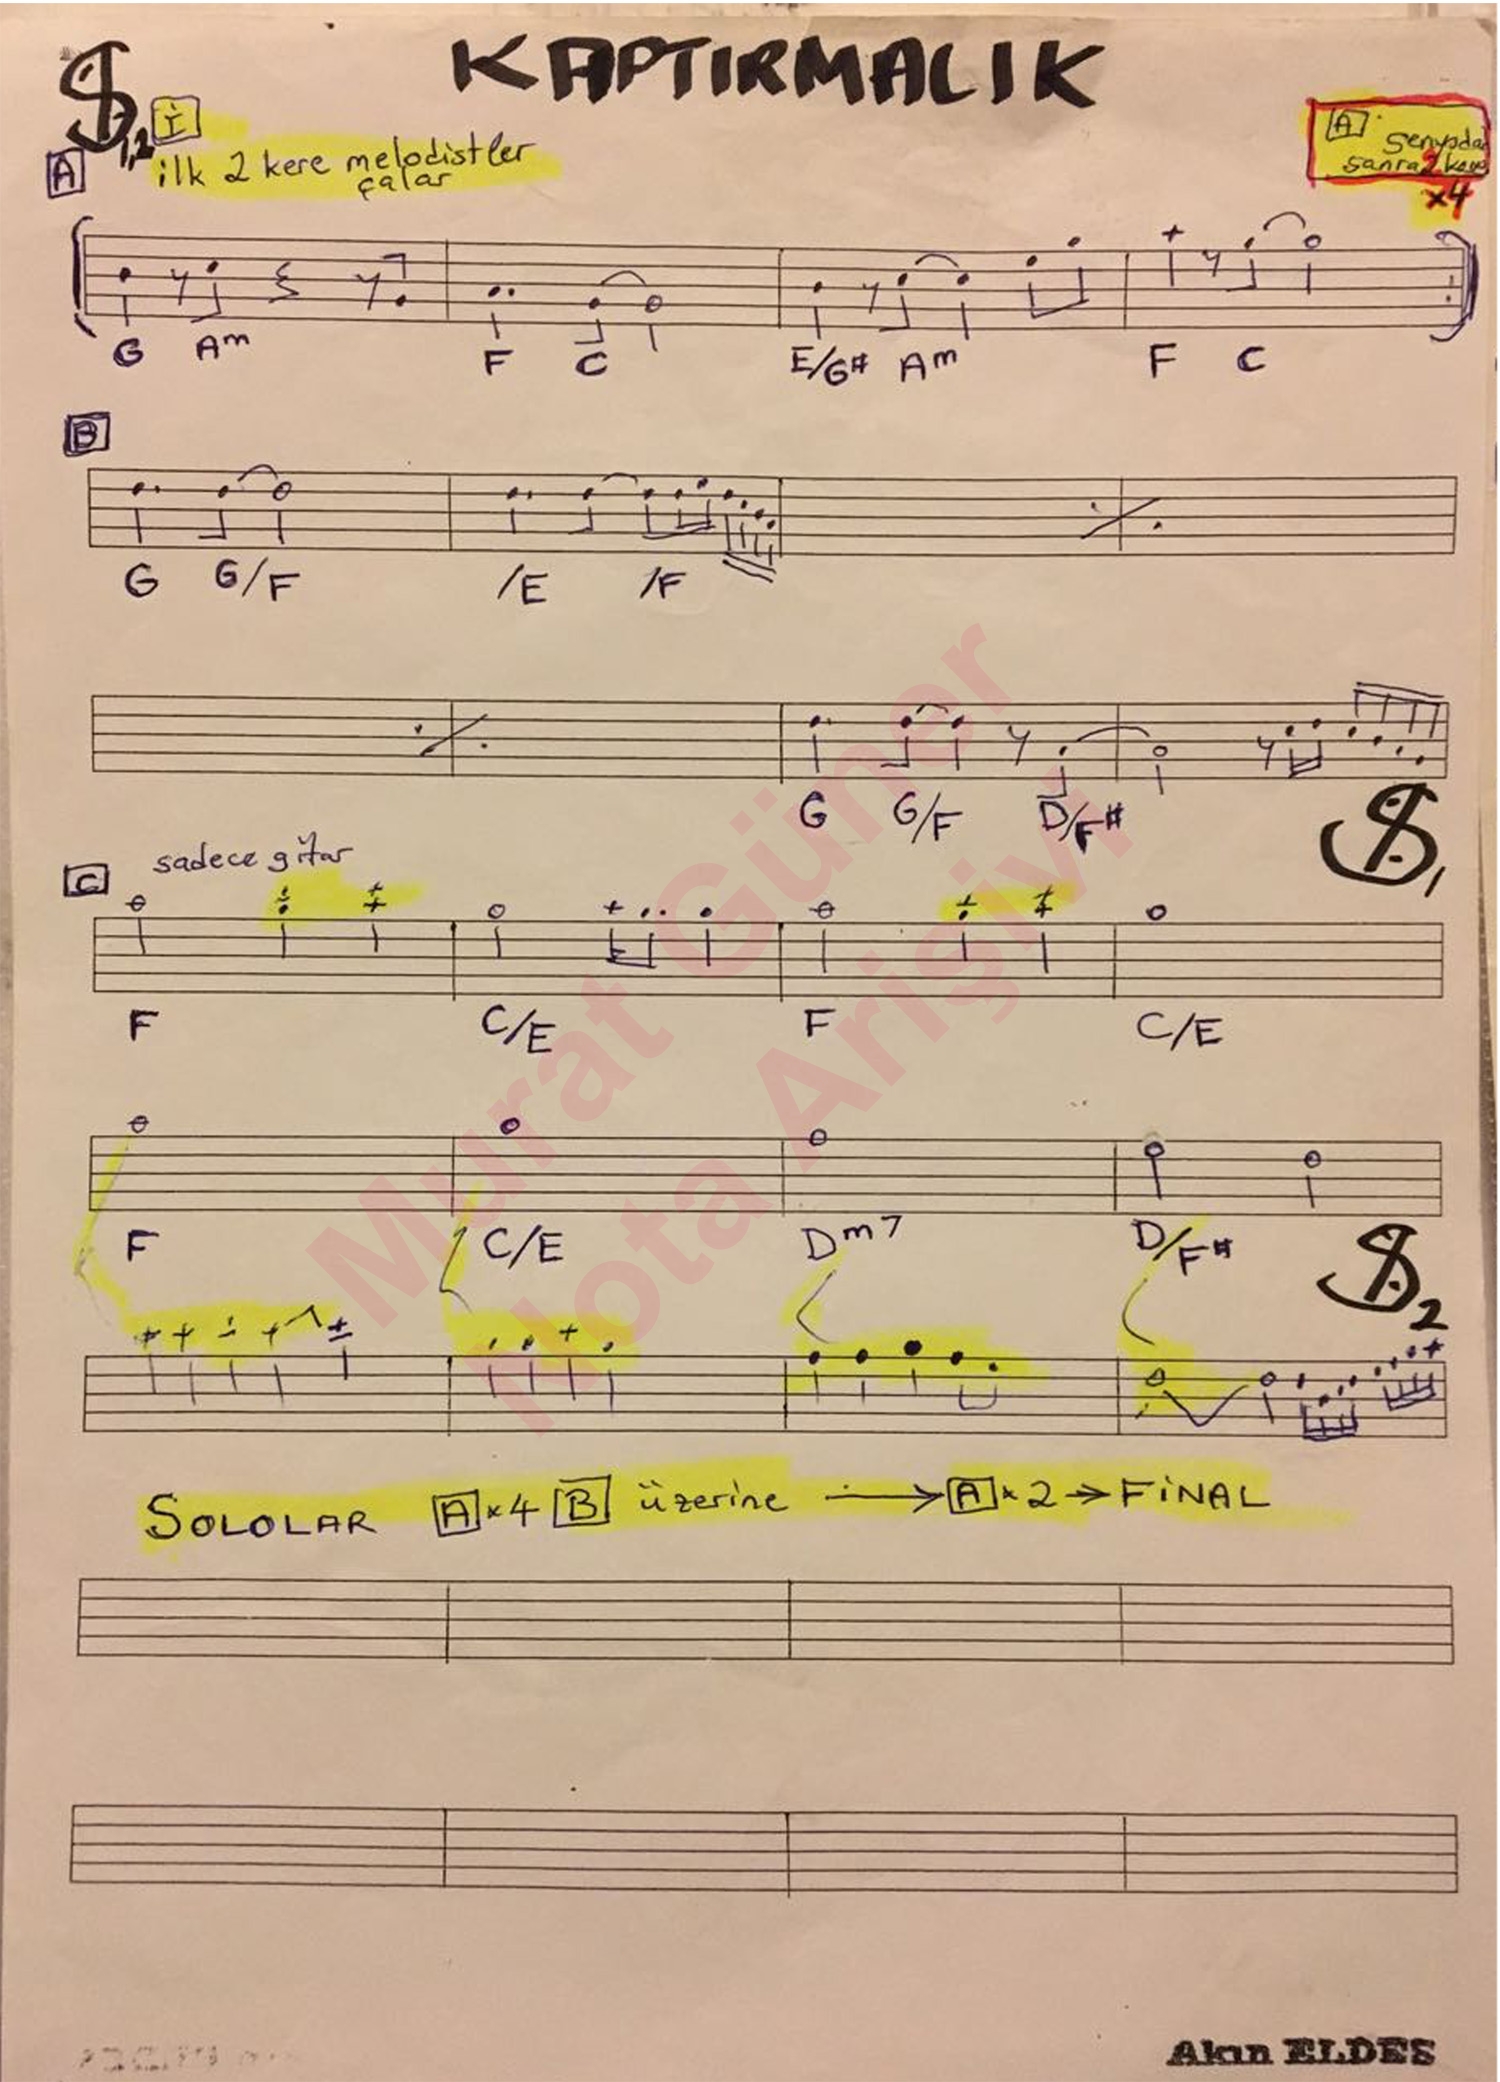 KAPTIRMALIK
1,2 İ
A ilk 2 kere melodistler
çalar
A
Senyodan
sonra 2 kere
x4
G Am F C E/G# Am F C
B
G G/F /E /F
G G/F D/F#
1
C sadece gitar
F C/E F C/E
F C/E Dm7 D/F#
2
SOLOLAR A x4 B üzerine → A x 2 → FİNAL
Murat Güner
Nota Arişivi
Akın ELDES